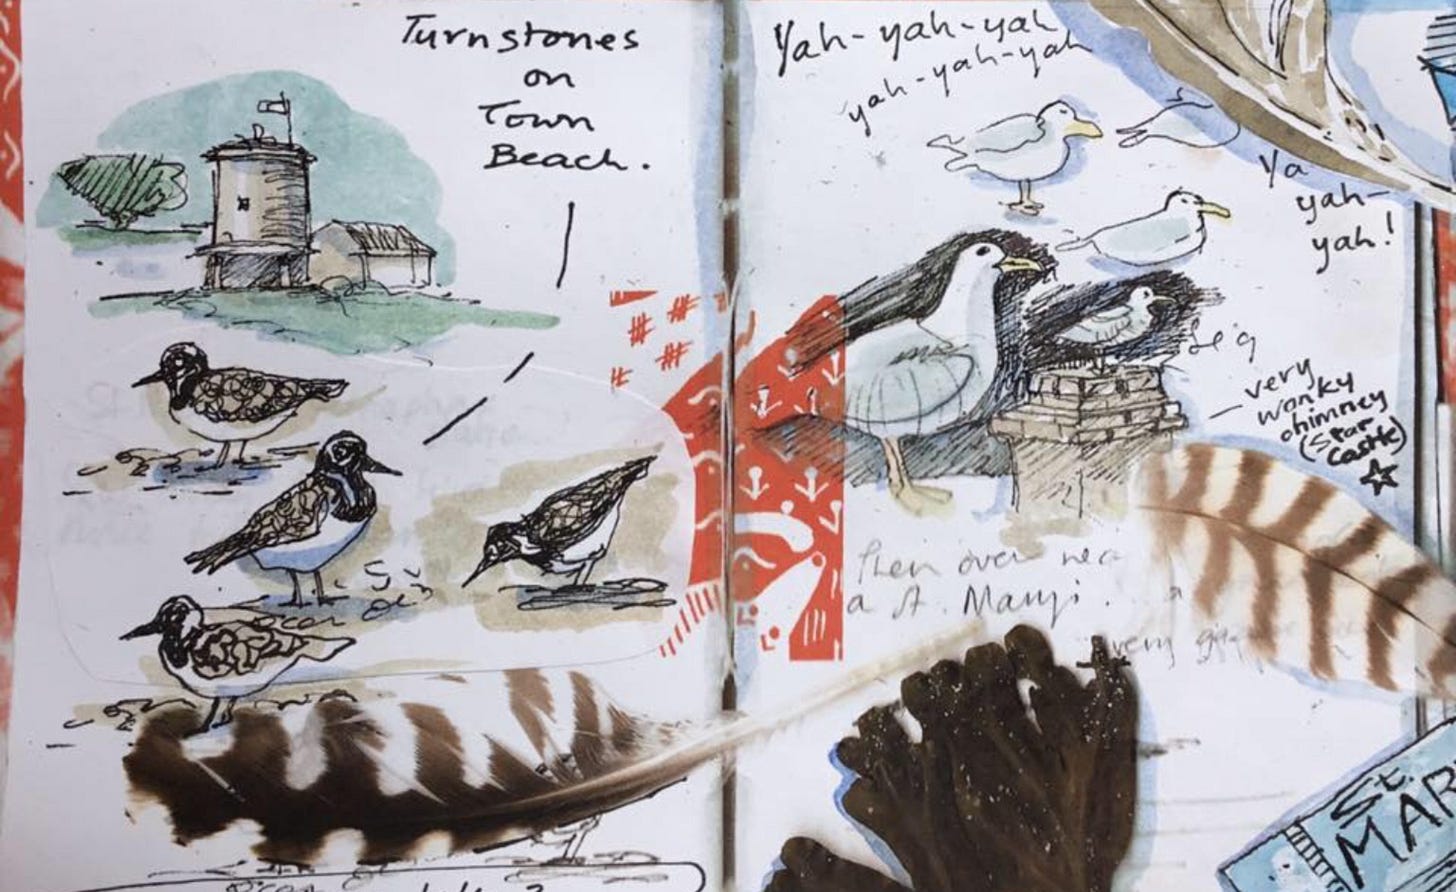 Turnstones
on
Town
Beach.
Yah-yah-yah
yah-yah-yah
Ya
yah-
yah!
very
wonky
chimney
(Star
Castle)
then over
a St. Mary's.
very
St.
MAR